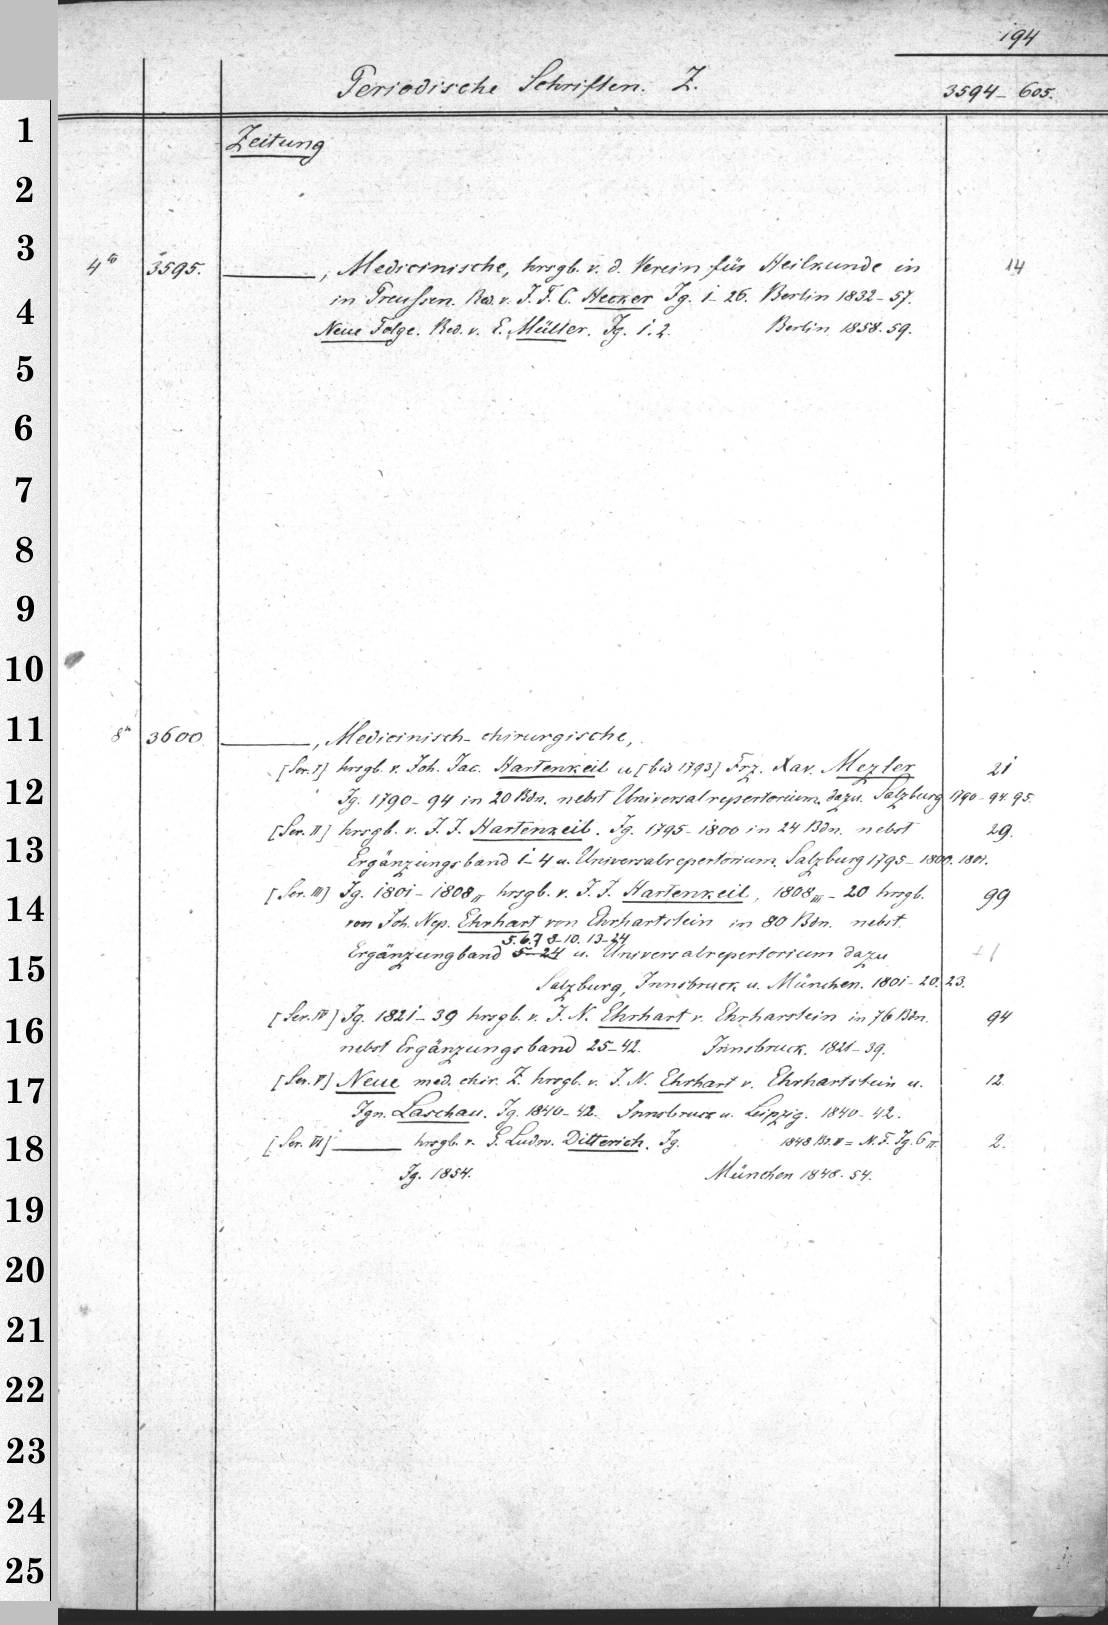 194
Periodische Schriften. Z.
3594–605.
Zeitung
4to 3595. ———, Medicinische, hrsgb. v. d. Verein für Heilkunde in 14
in Preussen. Red. v. J. F. C. Hecker Jg. 1–26. Berlin 1832–57.
Neue Folge. Red. v. E. Müller. Jg. 1.2. Berlin 1858.59.
8vo 3600 ———, Medicinisch-chirurgische,
[Ser. I] hrsgb. v. Joh. Jac. Hartenkeil u [bis 1793] Frz. Xav. Mezler 21
Jg. 1790–94 in 20 Bdn. nebst Universalrepertorium dazu. Salzburg 1790–94.95.
[Ser. II] hrsgb. v. J. J. Hartenkeil. Jg. 1795–1800 in 24 Bdn. nebst 29.
Ergänzungsband 1–4 u. Universalrepertorium. Salzburg 1795–1800. 1801.
[Ser. III] Jg. 1801–1808 II hrsgb. v. J. J. Hartenkeil, 1808 III–20 hrsgb. 99
von Joh. Nep. Ehrhart von Ehrhartstein in 80 Bdn. nebst
5. 6.7 8–10. 13–24
Ergänzungband 5–24 u. Universalrepertorium dazu +1
Salzburg, Innsbruck u. München. 1801–20. 23.
[Ser. IV] Jg. 1821–39 hrsgb. v. J. N. Ehrhart v. Ehrharstein in 76 Bdn. 94
nebst Ergänzungsband 25–42. Innsbruck. 1821–39.
[Ser. V] Neue med. chir. Z. hrsgb. v. J. N. Ehrhart v. Ehrhartstein u. 12.
Ign. Laschau. Jg. 1840–42. Innsbruck u. Leipzig. 1840–42.
[Ser. VI] ——— hrsgb. v. G. Ludw. Ditterich. Jg. 1848 Bd. II = N. F. Jg. 6 II. 2.
Jg. 1854. München 1848. 54.
1
2
3
4
5
6
7
8
9
10
11
12
13
14
15
16
17
18
19
20
21
22
23
24
25